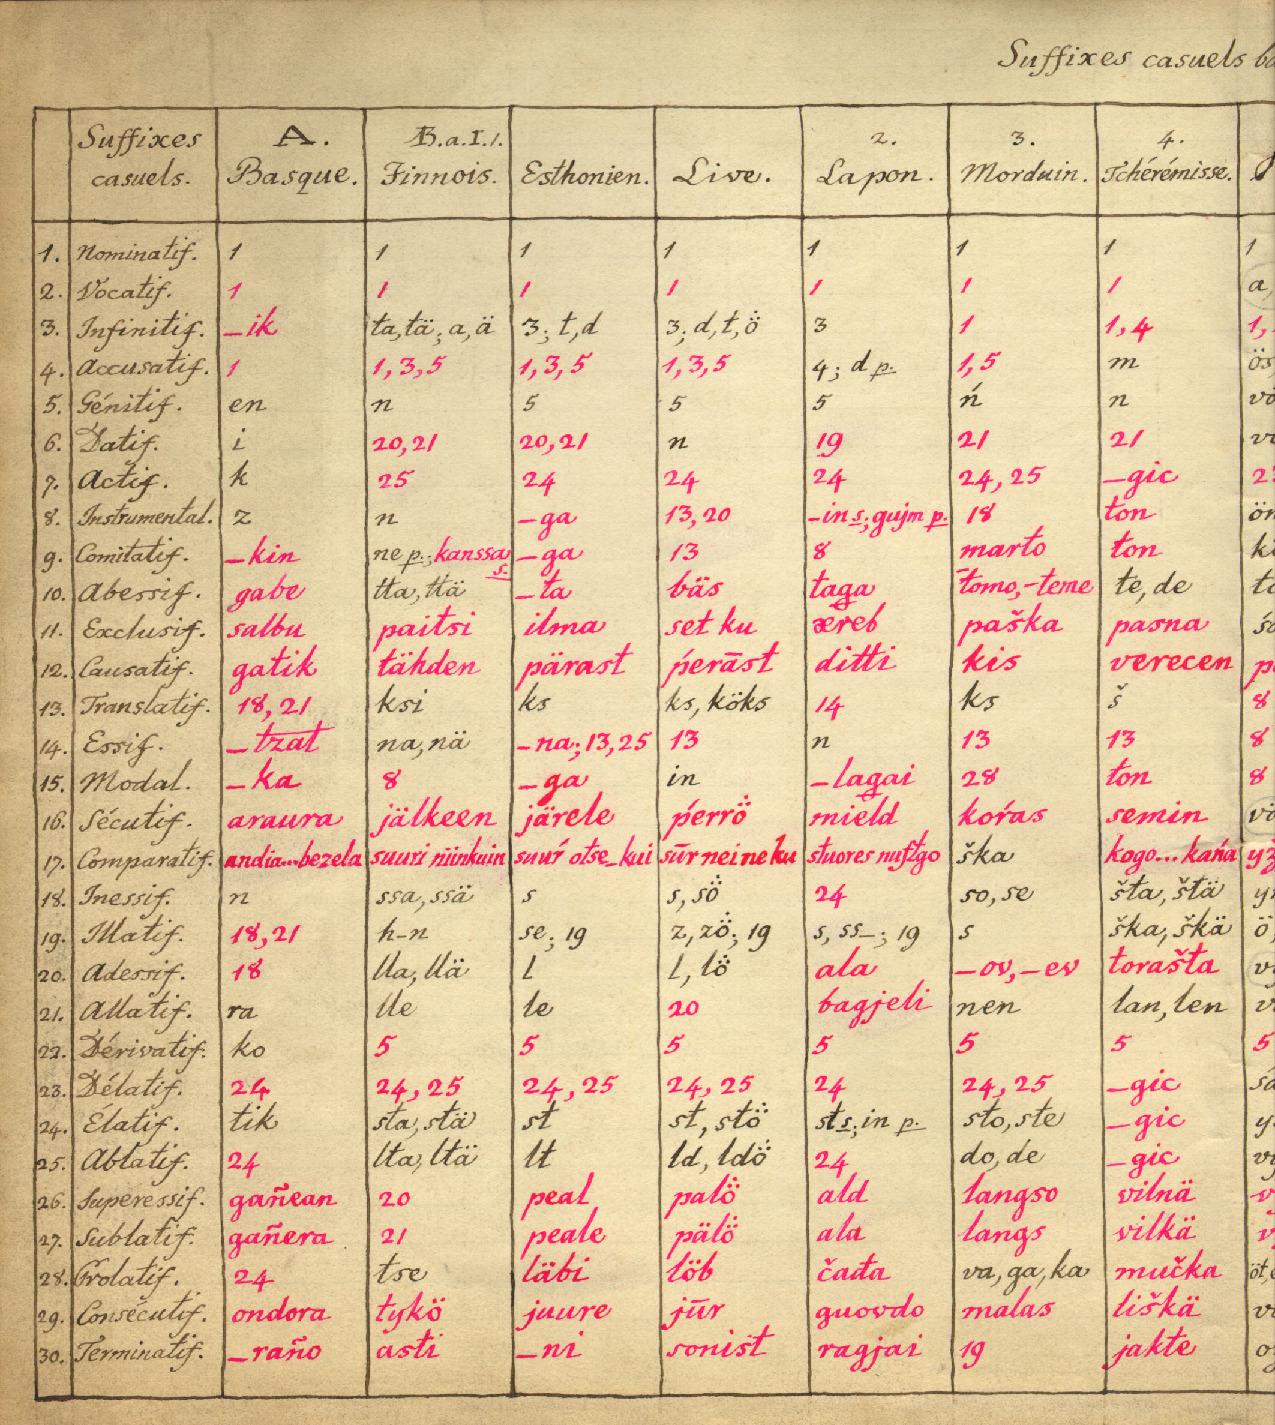 Suffixes casuels
Suffixes casuels. A. Basque. B.a.I.1. Finnois. Esthonien. Live. 2. Lapon. 3. Morduin. 4. Tchérémisse.
1. Nominatif. 1 1 1 1 1 1 1 1
2. Vocatif. 1 1 1 1 1 1 1 a,
3. Infinitif. _ik ta,tä; a,ä 3; t,d 3; d,t,ö̇ 3 1 1,4 1,
4. Accusatif. 1 1,3,5 1,3,5 1,3,5 4; d p. 1,5 m ös
5. Génitif. en n 5 5 5 ń n vö
6. Datif. i 20,21 20,21 n 19 21 21
7. Actif. k 25 24 24 24 24,25 _gic
8. Instrumental. z n _ga 13,20 _in s; gujm p. 18 ton ön
9. Comitatif. _kin ne p.; kanssa s. _ga 13 8 marto ton
10. Abessif. gabe tta,ttä _ta bäs taga tomo,-teme te,de
11. Exclusif. salbu paitsi ilma set ku æreb paška pasna
12. Causatif. gatik tähden pärast ṕerāst ditti kis verecen
13. Translatif. 18,21 ksi ks ks, köks 14 ks š 8
14. Essif. _tzat na,nä _na; 13,25 13 n 13 13 8
15. Modal. _ka 8 _ga in _lagai 28 ton 8
16. Sécutif. araura jälkeen järele ṕerrö̇ mield koŕas semin vö
17. Comparatif. andia...bezela suuri niinkuin suuŕ otse_kui sūr nei ne ku stuores nuftgo ška kogo...kańa yz
18. Inessif. n ssa,ssä s s, sö̇ 24 so, se šta, štä
19. Illatif. 18,21 h-n se; 19 z, zö̇; 19 s, ss_; 19 s ška, škä ö,
20. Adessif. 18 lla, llä l l, lö̇ ala _ov,_ev torašta
21. Allatif. ra lle le 20 bagjeli nen lan, len
22. Dérivatif. ko 5 5 5 5 5 5 5
23. Délatif. 24 24,25 24,25 24,25 24 24,25 _gic
24. Élatif. tik sta, stä st st, stö̇ st s; in p. sto, ste _gic
25. Ablatif. 24 lta, ltä lt ld, ldö̇ 24 do, de _gic
26. Superessif. gañean 20 peal palö̇ ald langso vilnä
27. Sublatif. gañera 21 peale pälö̇ ala langs vilkä
28. Prolatif. 24 tse läbi löb čađa va, ga, ka mučka
29. Consécutif. ondora tykö juure jūr guovdo malas liškä
30. Terminatif. _raño asti _ni sonist ragjai 19 jakte